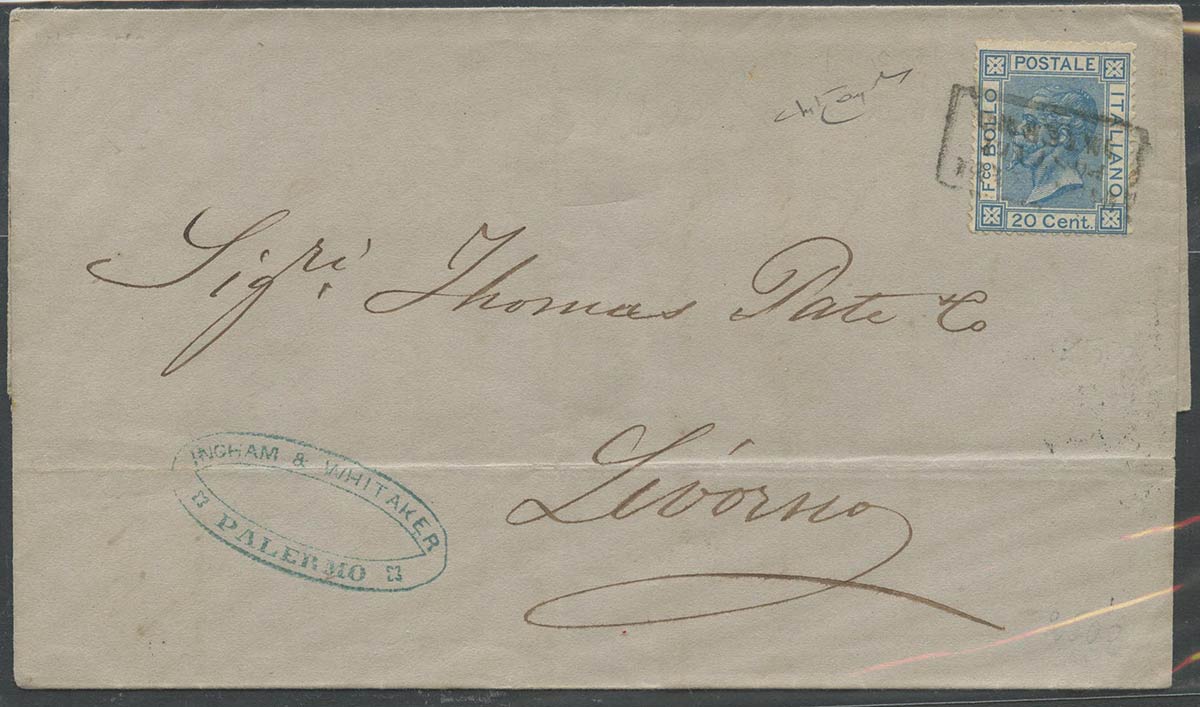 POSTALE
Fco BOLLO
ITALIANO
20 Cent.
Sigri Thomas Pate & Co
Livorno
INGHAM & WHITAKER
PALERMO